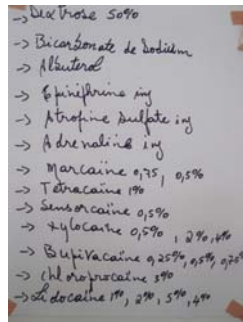 -> Dextrose 50%
-> Bicarbonate de Sodium
-> Albuterol
-> Epinephrine inj
-> Atrofine Sulfate inj
-> Adrenaline inj
-> Marcaine 0,75, 0,5%
-> Tetracaine 1%
-> Sensorcaine 0,5%
-> Xylocaine 0,5%, 2%, 4%
-> Bupivacaine 0,25%, 0,5%, 0,75%
-> Chloroprocaine 3%
-> Lidocaine 1%, 2%, 5%, 4%